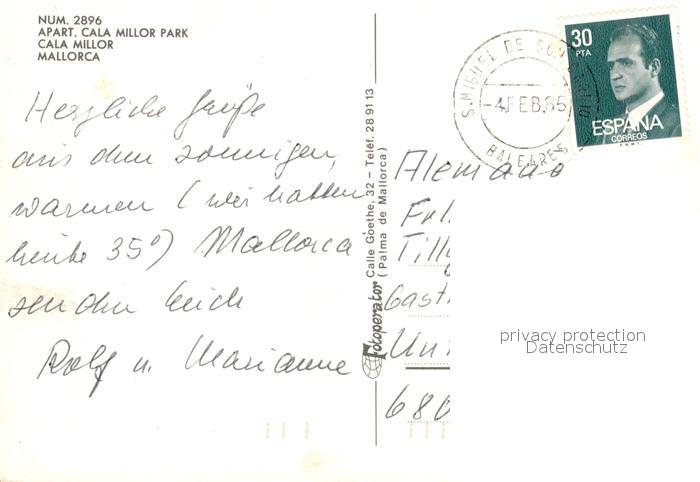 NUM. 2896
APART. CALA MILLOR PARK
CALA MILLOR
MALLORCA
Herzliche Grüße
aus dem sonnigen,
warmen (wir hatten
heute 35°) Mallorca
senden Euch
Rolf u. Marianne
Fotoperator Calle Goethe, 32 - Teléf. 28 91 13
(Palma de Mallorca)
S. MIGUEL DE
-4.FEB.85
BALEARES
30
PTA
ESPAÑA
CORREOS
F.N.M.T.
Alemania
Tilly
Gast
680
privacy protection
Datenschutz